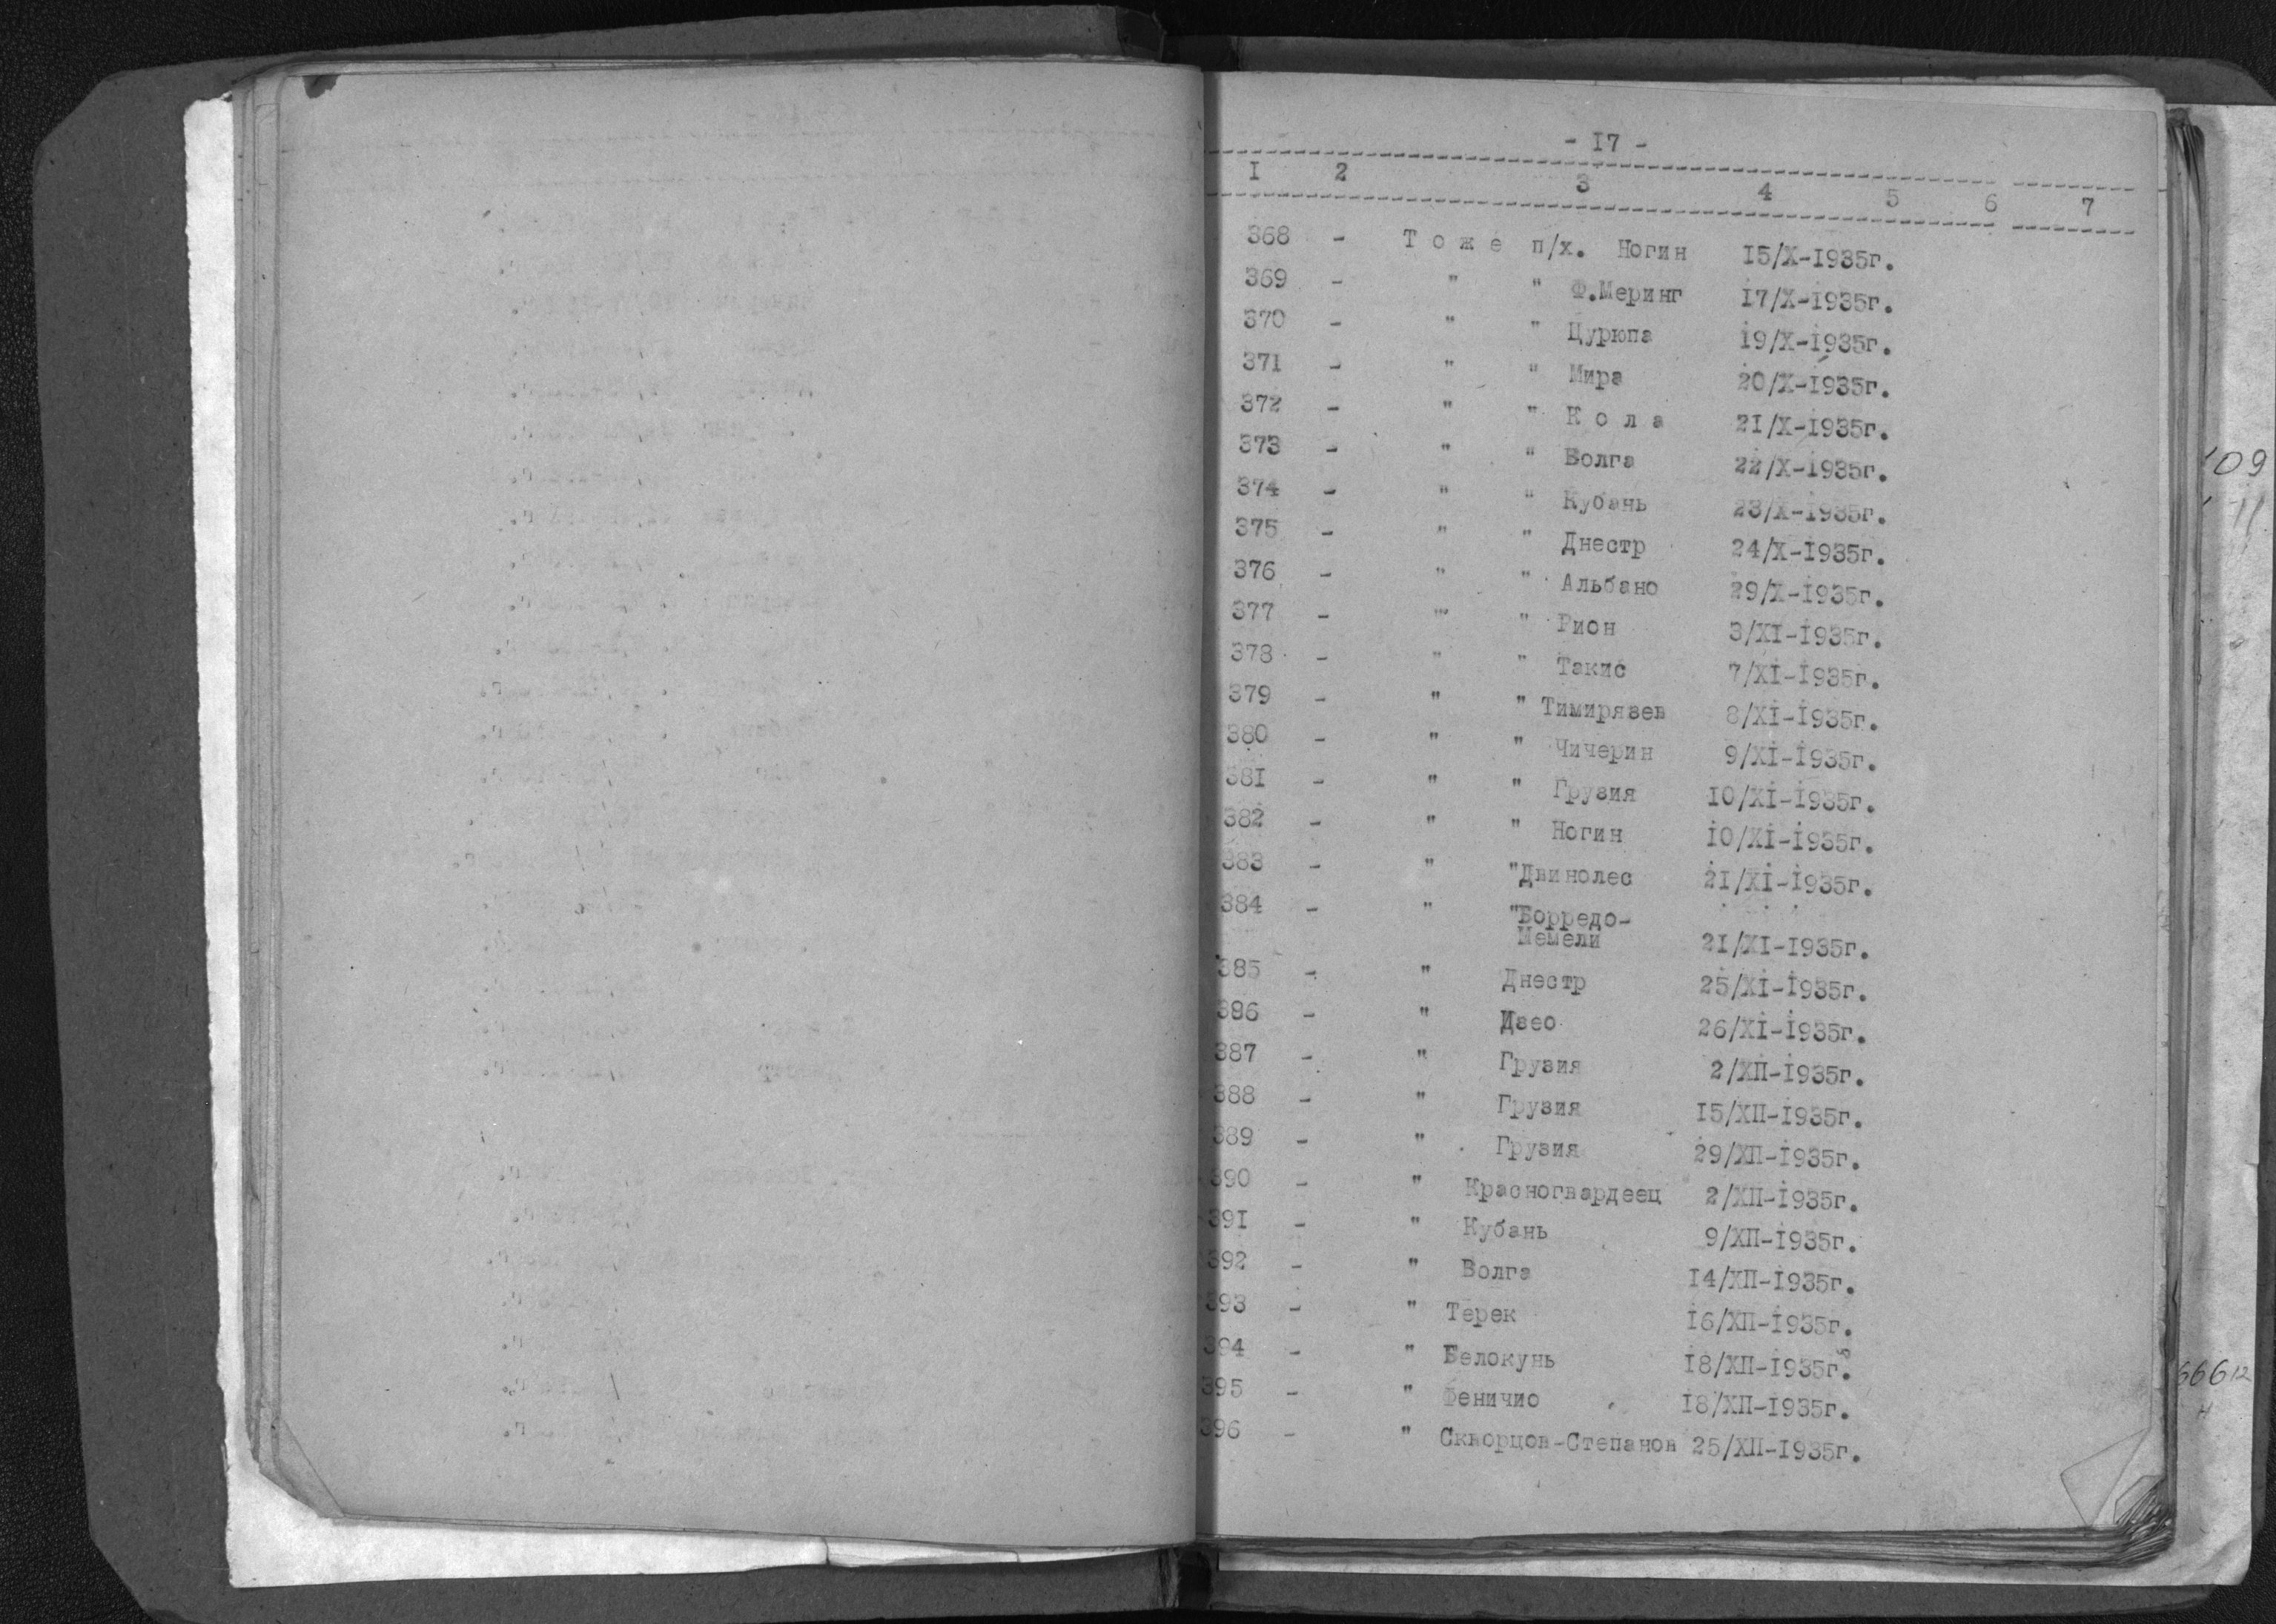 - I7 -
I 2 3 4 5 6 7
368 - Т о ж е п/х. Ногин I5/X-I935г.
369 - " " Ф.Меринг I7/X-I935г.
370 - " " Цурюпа I9/X-I935г.
371 - " " Мира 20/X-I935г.
372 - " " К о л а 2I/X-I935г.
373 - " " Волга 22/X-I935г.
374 - " " Кубань 23/X-I935г.
375 - " " Днестр 24/X-I935г.
376 - " " Альбано 29/X-I935г.
377 - " " Рион 3/XI-I935г.
378 - " " Такис 7/XI-I935г.
379 - " " Тимирязев 8/XI-I935г.
380 - " " Чичерин 9/XI-I935г.
38I - " " Грузия I0/XI-I935г.
382 - " " Ногин I0/XI-I935г.
383 - " "Двинолес 2I/XI-I935г.
384 - " "Борредо-
Мемели 2I/XI-I935г.
385 - " Днестр 25/XI-I935г.
386 - " Дзео 26/XI-I935г.
387 - " Грузия 2/XII-I935г.
388 - " Грузия I5/XII-I935г.
389 - " Грузия 29/XII-I935г.
390 - " Красногвардеец 2/XII-I935г.
39I - " Кубань 9/XII-I935г.
392 - " Волга I4/XII-I935г.
393 - " Терек I6/XII-I935г.
394 - " Белокунь I8/XII-I935г.
395 - " Феничио I8/XII-I935г.
396 - " Скворцов-Степанов 25/XII-I935г.